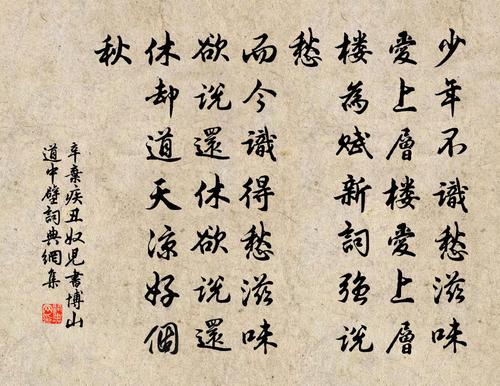 少年不識愁滋味
愛上層樓愛上層
樓為賦新詞強說
愁
而今識得愁滋味
欲說還休欲說還
休却道天涼好個
秋
辛棄疾丑奴兒書博山
道中壁詞典網集